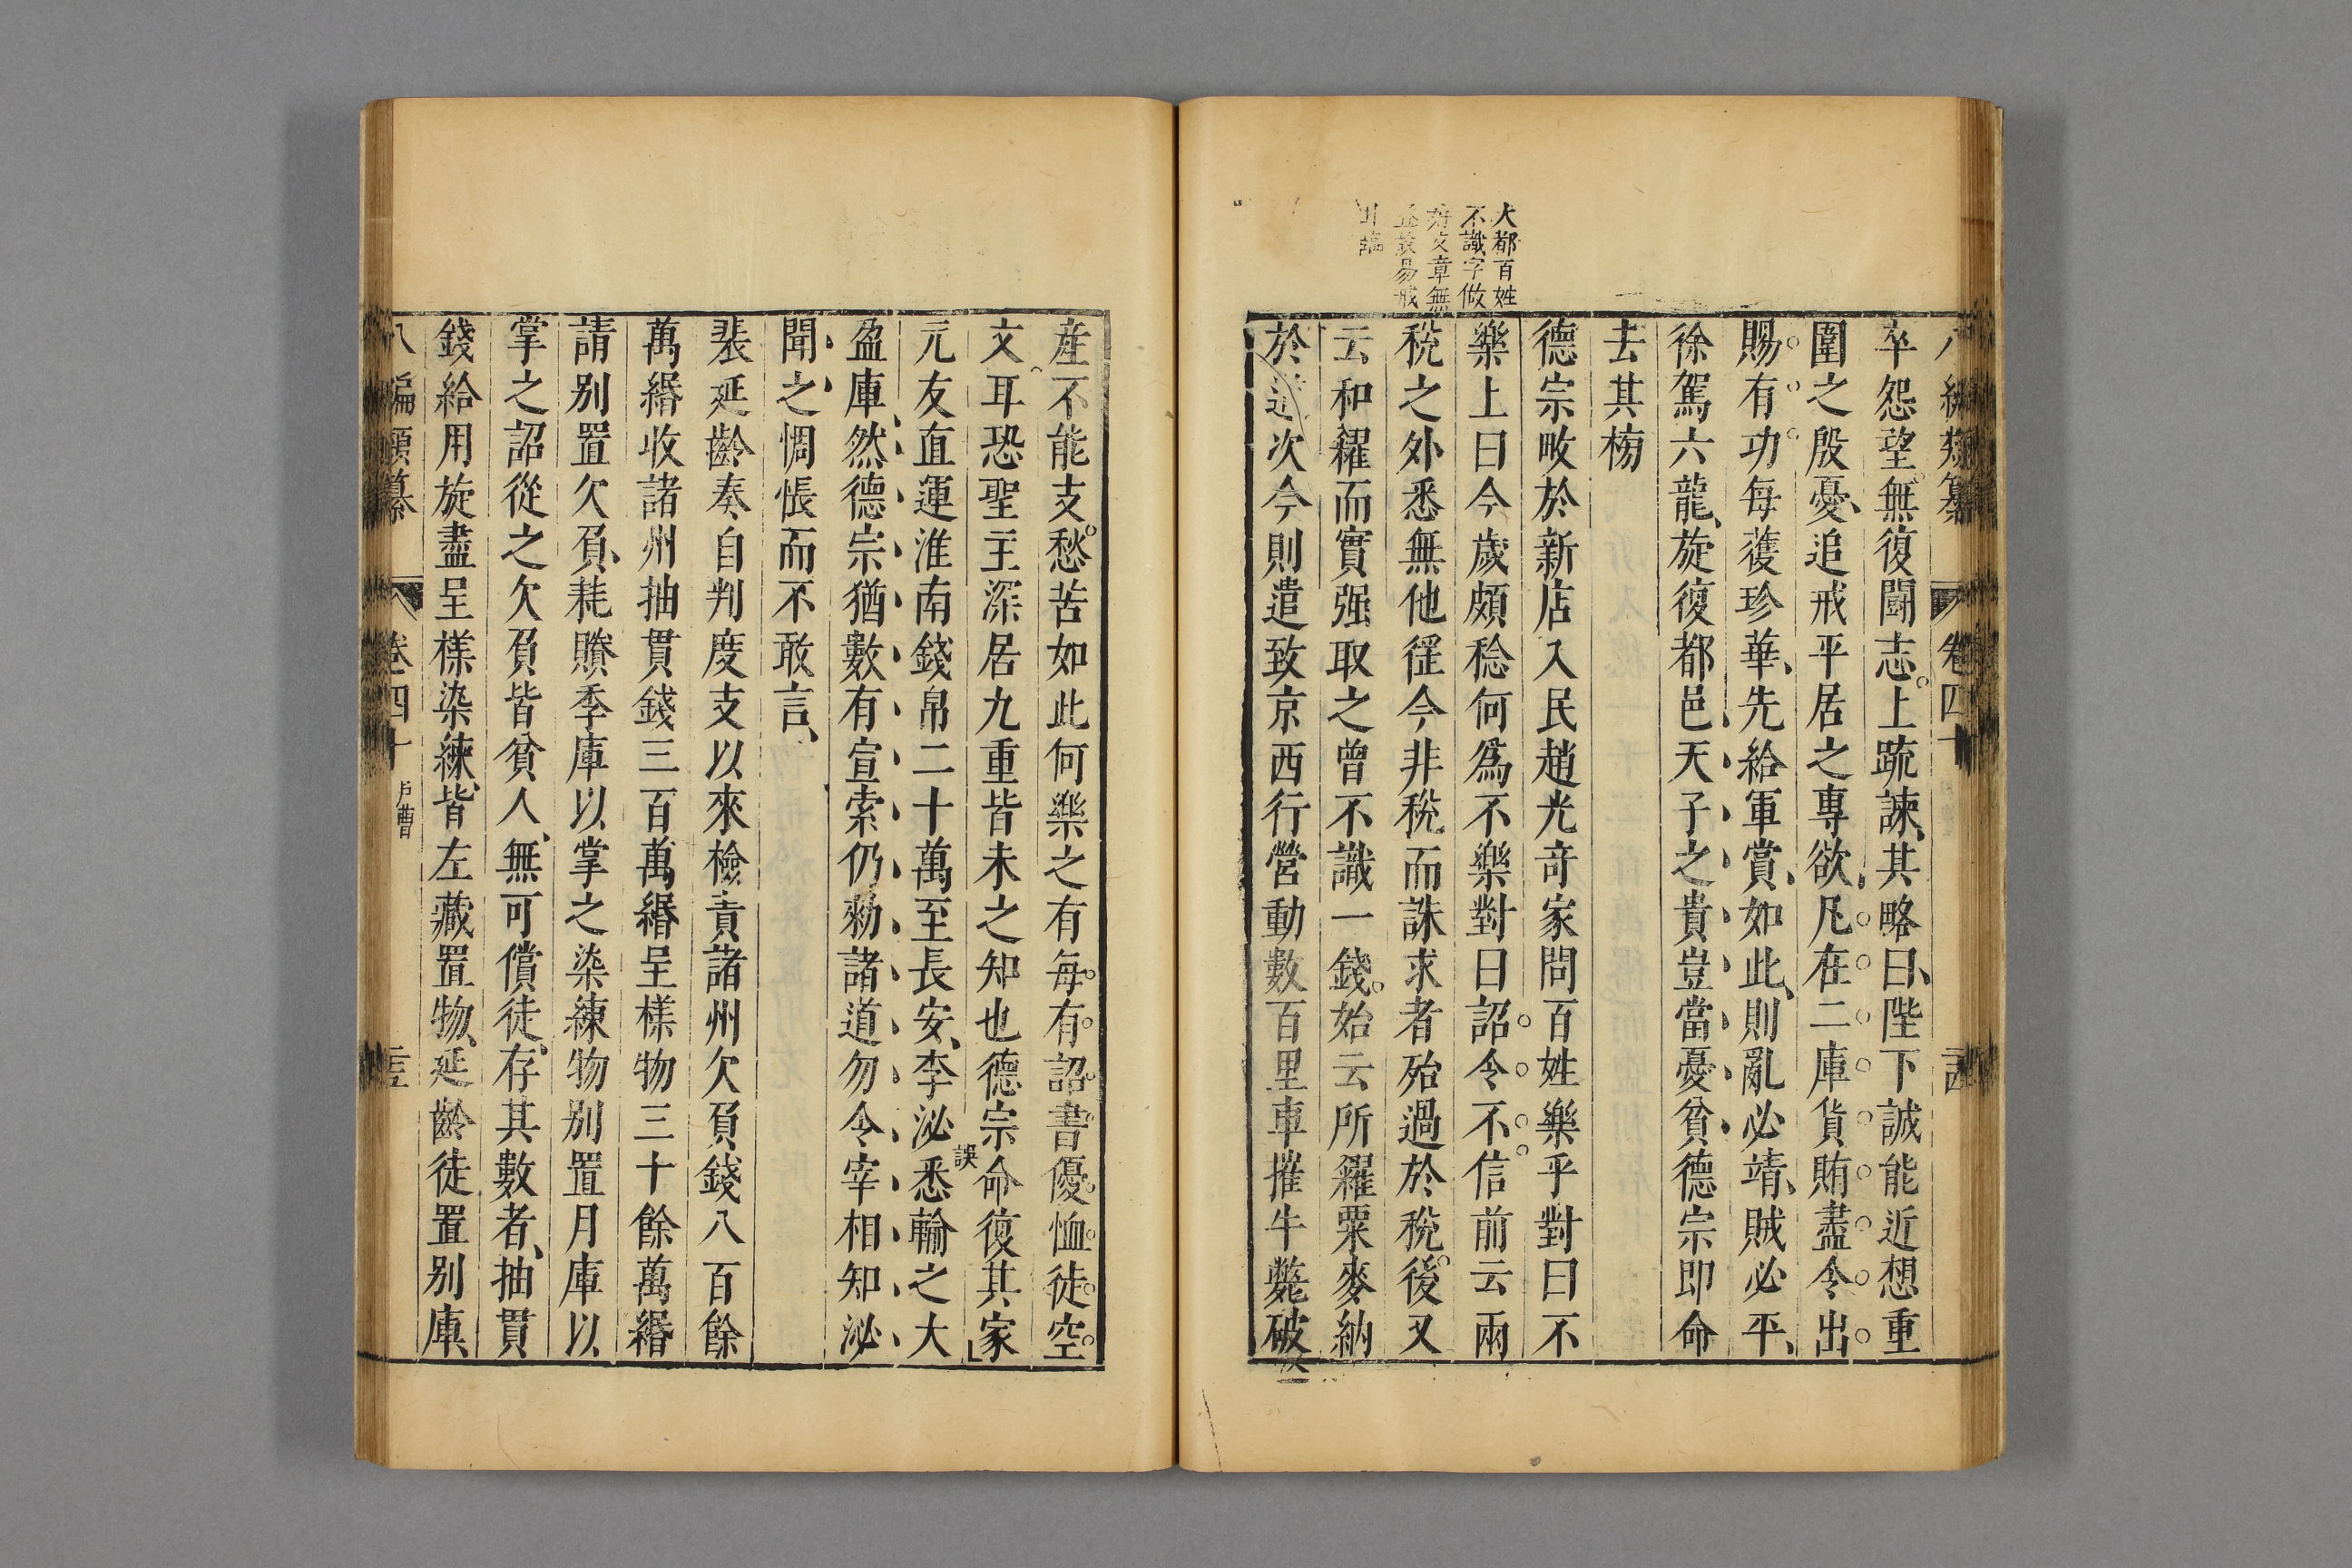 八編類纂 卷四十
卒怨望無復鬬志上疏諫其略曰陛下誠能近想重
圍之殷憂追戒平居之專欲凡在二庫貨賄盡令出
賜有功每獲珍華先給軍賞如此則亂必靖賊必平
徐駕六龍旋復都邑天子之貴豈當憂貧德宗即命
去其榜
德宗畋於新店入民趙光竒家問百姓樂乎對曰不
樂上曰今歲頗稔何爲不樂對曰詔令不信前云兩
稅之外悉無他徭今非稅而誅求者殆過於稅後又
云和糴而實强取之曾不識一錢始云所糴粟麥納
於道次今則遣致京西行營動數百里車摧牛斃破
大都百姓
不識字做
文章無
易
産不能支愁苦如此何樂之有每有詔書優恤徒空
文耳恐聖主深居九重皆未之知也德宗命復其家
元友直運淮南錢帛二十萬至長安李泌悉輸之大
誤
盈庫然德宗猶數有宣索仍勑諸道勿令宰相知泌
聞之惆悵而不敢言
裴延齡奏自判度支以來檢責諸州欠負錢八百餘
萬緡收諸州抽貫錢三百萬緡呈樣物三十餘萬緡
請別置欠負耗賸季庫以掌之染練物別置月庫以
掌之詔從之欠負皆貧人無可償徒存其數者抽貫
錢給用旋盡呈樣染練皆左藏置物延齡徒置別庫
八編類纂 卷四十 戶曹